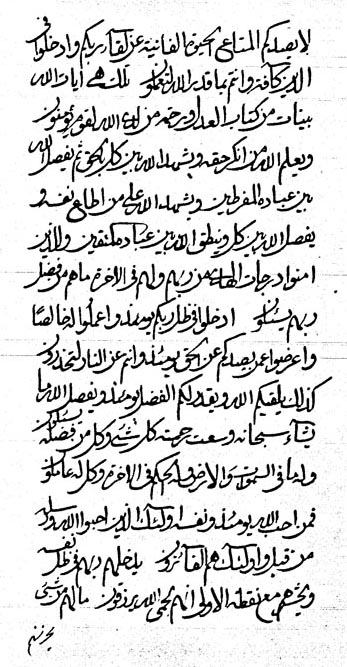 لا يصدنكم المتاع الحيوة الفانية عن لقاء ربكم وادخلوا في
الدين كافة وانتم بما قدر الله لتعملون تلك هي آيات الله
بينات من كتاب العدل ورحمة من لدى الله لقوم يؤمنون
ويعلم الله من انكر حقه ويشهد الله بين كل بالحق ثم يفصل الله
بين عباده المفرطين ويشهد الله على من اطاع نفسه و
يفصل الله بين كل وينطق الله بين عباده المتقين والذين
امنوا درجات الهداية من ربهم ولهم في الاخرة ما هم من فضل
ربهم يسئلون ادخلوا في ظل ربكم يومئذ واعملوا لله خالصا
واعرضوا عمن يصدكم عن الحق يومئذ وانتم عن النار لتحذرون
كذلك يلقيكم الله ويقدر لكم الفضل يومئذ ويفصل الله ما
يشاء سبحانه وسعت رحمته كل شيء وكل من فضله يسئلون
وله ما في السموات والارض وله الحكم في الاخرة وكل له عاملون
فمن احب الله يومئذ ونفسه اولئك الذين احبوا الله ورسله
من قبل واولئك هم الفائزون يدخلهم ربهم في ظل نفسه
ويحشرهم مع نقطة الاولى انهم بحبي الله يرزقون ما لهم من شيء
يحزنهم